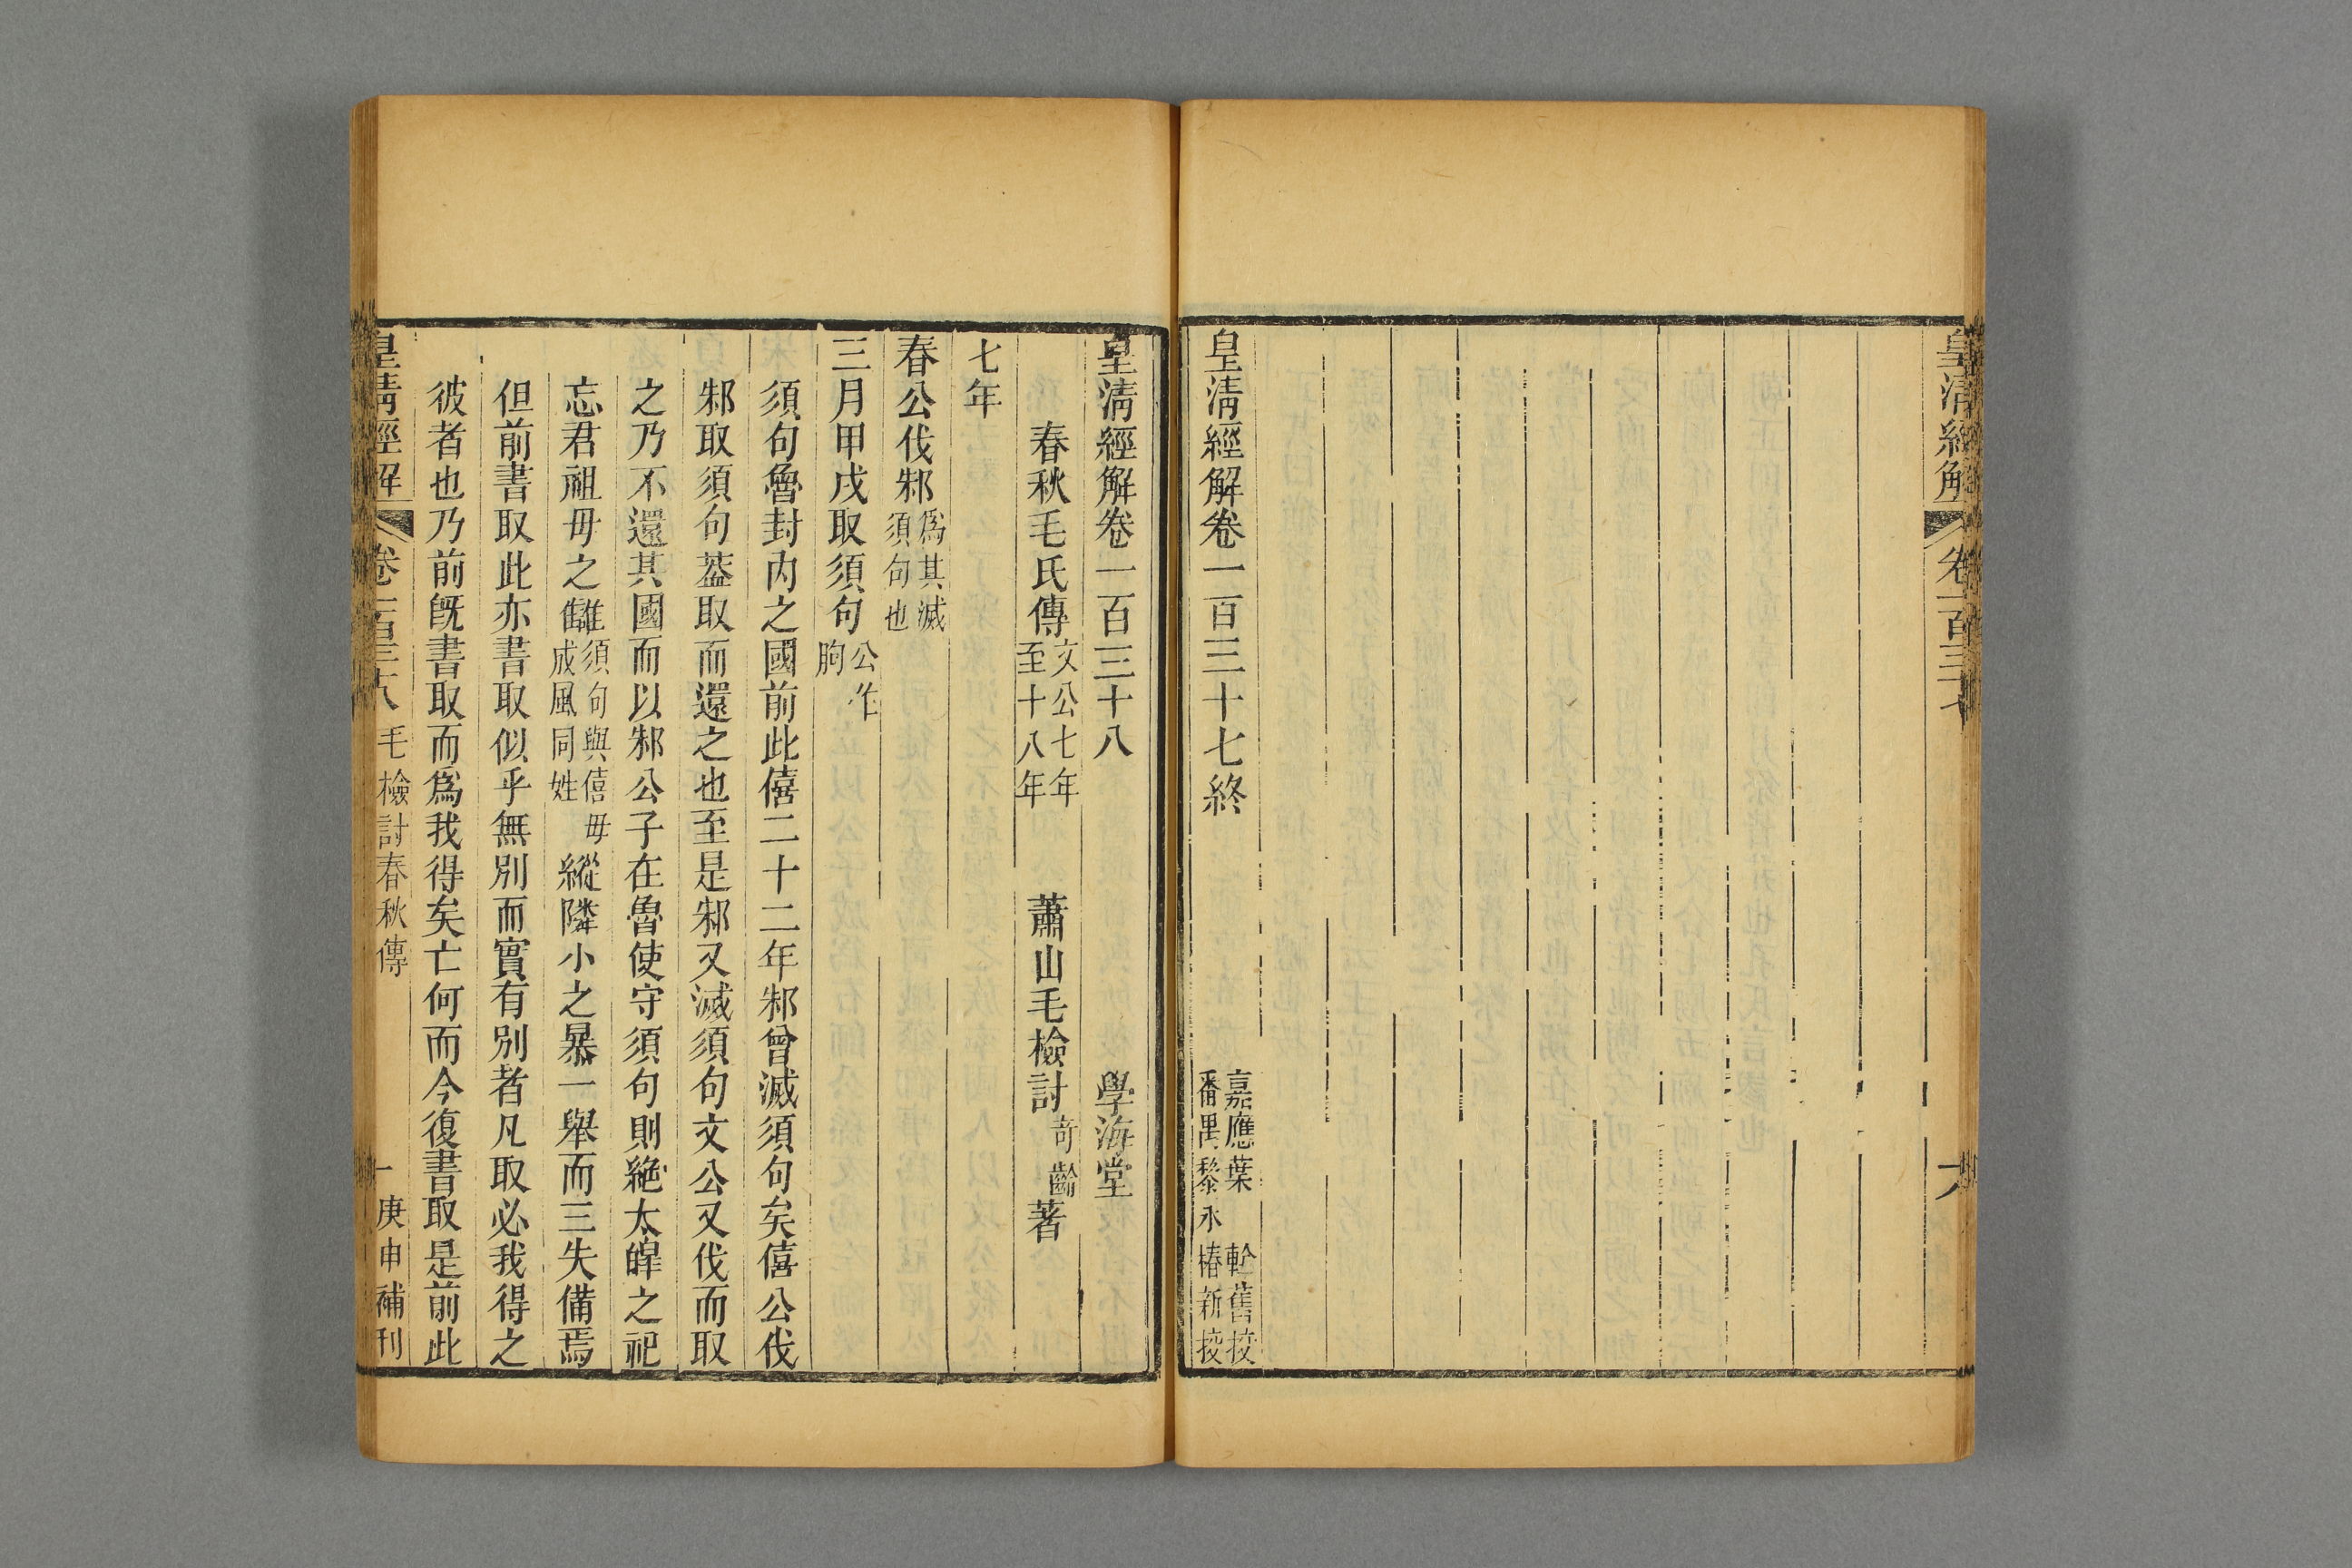 皇清經解
卷一百三十七
皇清經解卷一百三十七終
嘉應葉　輪舊挍
番禺黎永椿新挍
皇清經解卷一百三十八　學海堂
春秋毛氏傳文公七年至十八年　蕭山毛檢討奇齡著
七年
春公伐邾爲其滅須句也
三月甲戌取須句公作朐
須句魯封內之國前此僖二十二年邾曾滅須句矣僖公伐
邾取須句葢取而還之也至是邾又滅須句文公又伐而取
之乃不還其國而以邾公子在魯使守須句則絕太皥之祀
忘君祖毋之讎須句與僖毋成風同姓縱隣小之暴一舉而三失備焉
但前書取此亦書取似乎無別而實有別者凡取必我得之
彼者也乃前旣書取而爲我得矣亡何而今復書取是前此
皇清經解　卷一百三十八　毛檢討春秋傳　一　庚申補刊